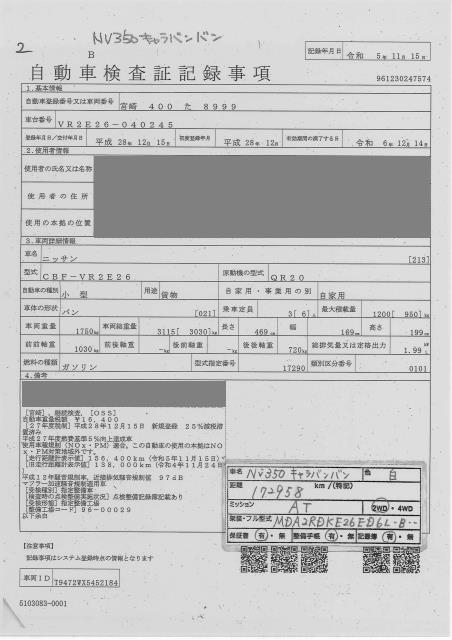 NV350キャラバンバン
2
B
記録年月日 令和 5年11月15日
自動車検査証記録事項
961230247574
1.基本情報
自動車登録番号又は車両番号 宮崎 400 た 8999
車台番号 VR2E26-040245
登録年月日/交付年月日 平成 28年12月15日 初度登録年月 平成 28年12月 有効期間の満了する日 令和 6年12月14日
2.使用者情報
使用者の氏名又は名称
使用者の住所
使用の本拠の位置
3.車両詳細情報
車名 ニッサン [213]
型式 CBF-VR2E26 原動機の型式 QR20
自動車の種別 小型 用途 貨物 自家用・事業用の別 自家用
車体の形状 バン [021] 乗車定員 3[ 6]人 最大積載量 1200[ 950]kg
車両重量 1750kg 車両総重量 3115[ 3030]kg 長さ 469cm 幅 169cm 高さ 199cm
前前軸重 1030kg 前後軸重 -kg 後前軸重 -kg 後後軸重 720kg 総排気量又は定格出力 1.99 kW L
燃料の種類 ガソリン 型式指定番号 17290 類別区分番号 0101
4.備考
[宮崎],継続検査,[OSS]
自動車重量税額 ¥16,400
[27年度税制]平成28年12月15日 新規登録 25%減税措置済み
平成27年度燃費基準5%向上達成車
使用車種規制(NOx・PM)適合,この自動車の使用の本拠はNOx・PM対策地域外です。
[走行距離計表示値]156,400km(令和5年11月15日)
[旧走行距離計表示値]138,000km(令和4年11月24日)
平成12年騒音規制車,近接排気騒音規制値 97dB
マフラー加速騒音規制適用車
[受検種別]指定整備車
[検査時の点検整備実施状況]点検整備記録簿記載あり
[受検形態]指定整備工場
[整備工場コード]96-00029
以下余白
車名 NV350キャラバンバン 色 白
距離 172958 km/(特記)
ミッション AT 2WD・4WD
架装・フル型式 MDA2RDKE26EDGL-B--
保証書 有・無 整備手帳 有・無 記録簿 有・無
【注意事項】
記録事項はシステム登録時点の情報となります
車両ID T9472WX5452184
5103083-0001